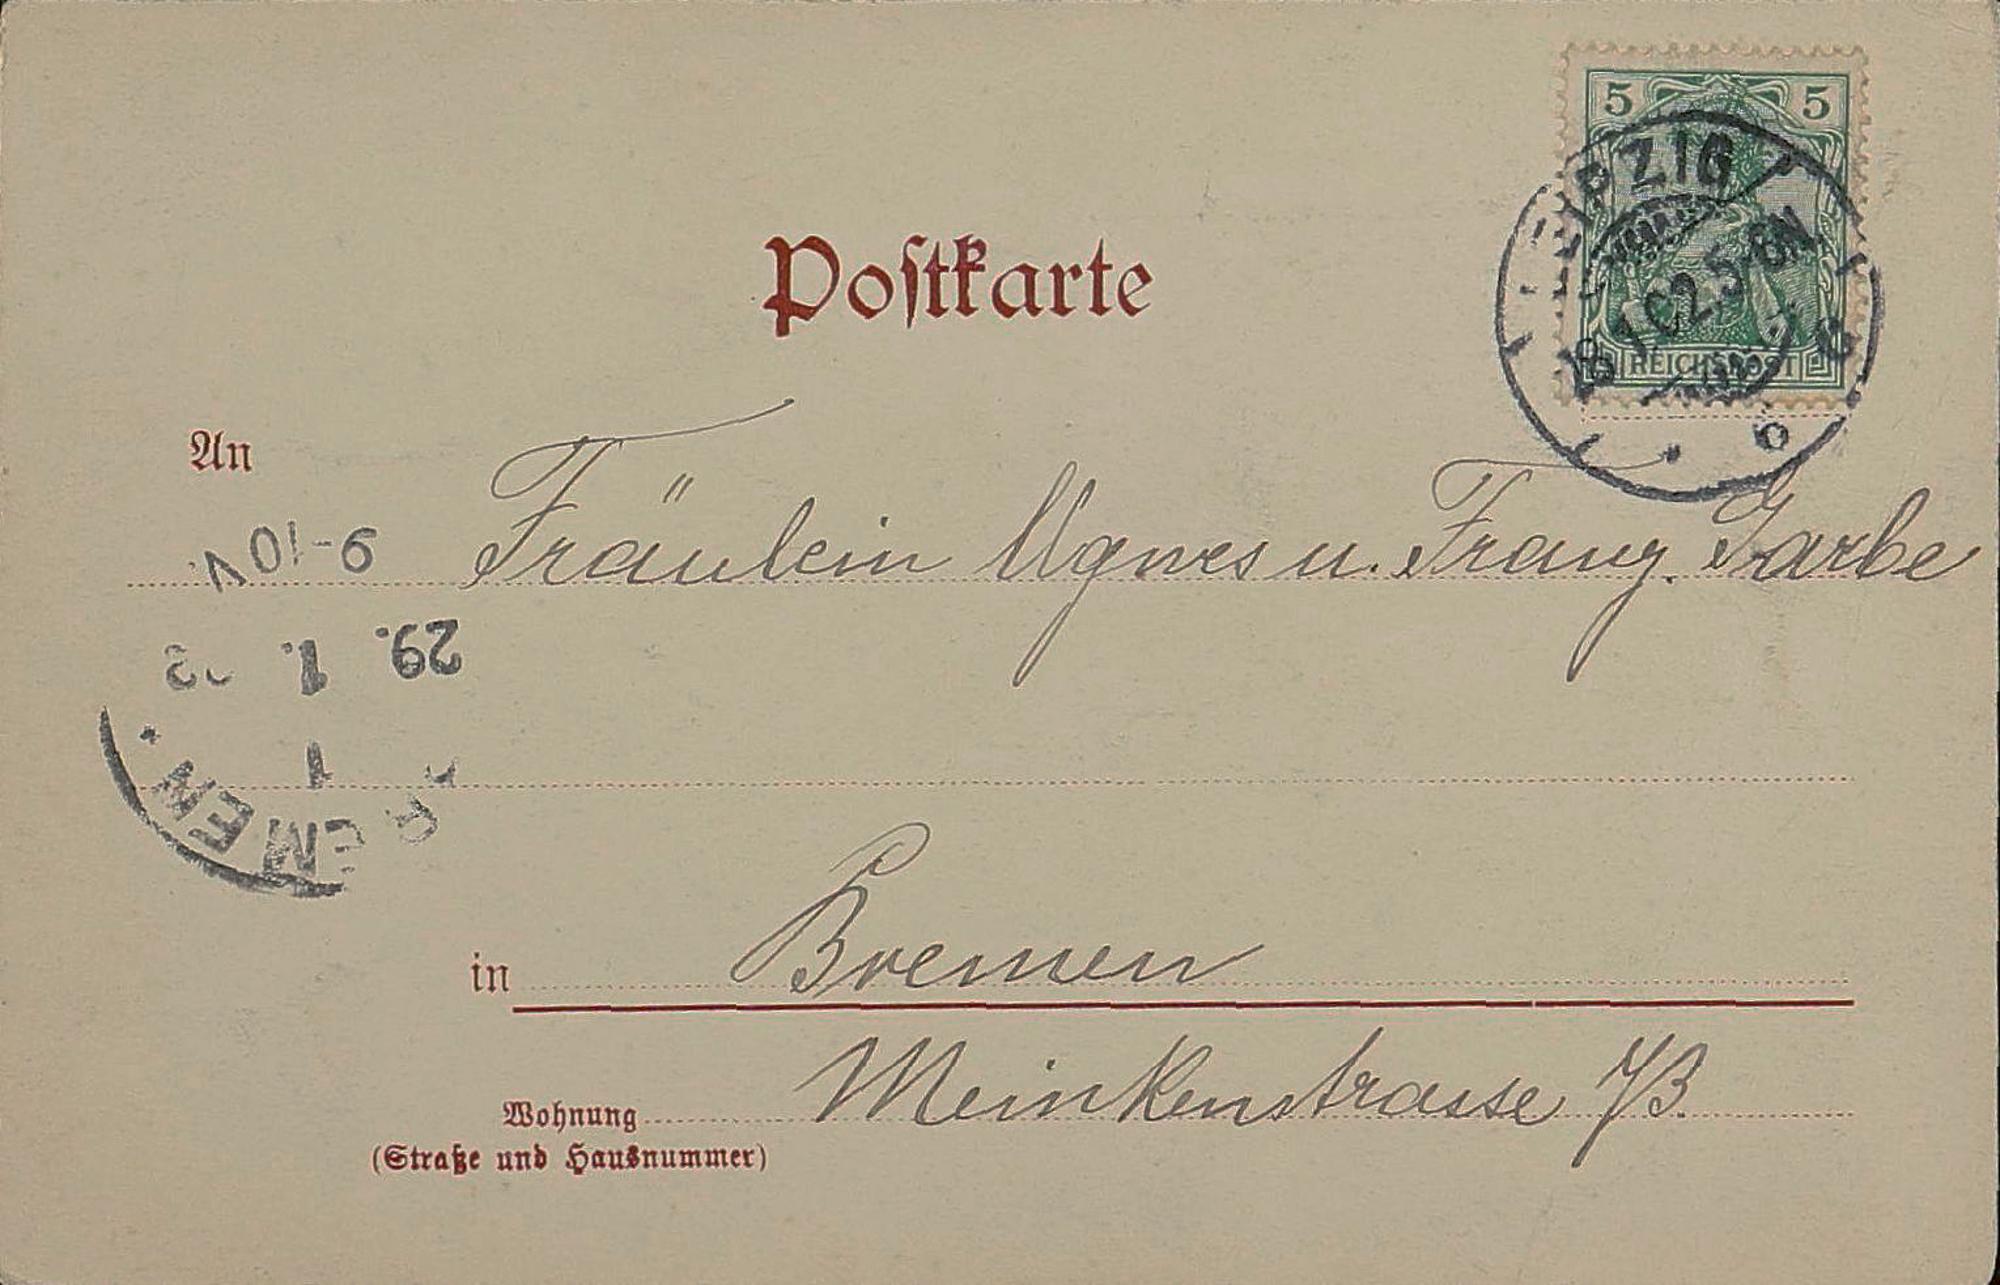 Postkarte
5 5
LEIPZIG
1.02.5-6N
REICHSPOST
An
Fräulein Agnes u. Franz. Garbe
9-10V.
29. 1.
1
BREMEN.
in Bremen
Wohnung Meinkenstrasse
(Straße und Hausnummer)